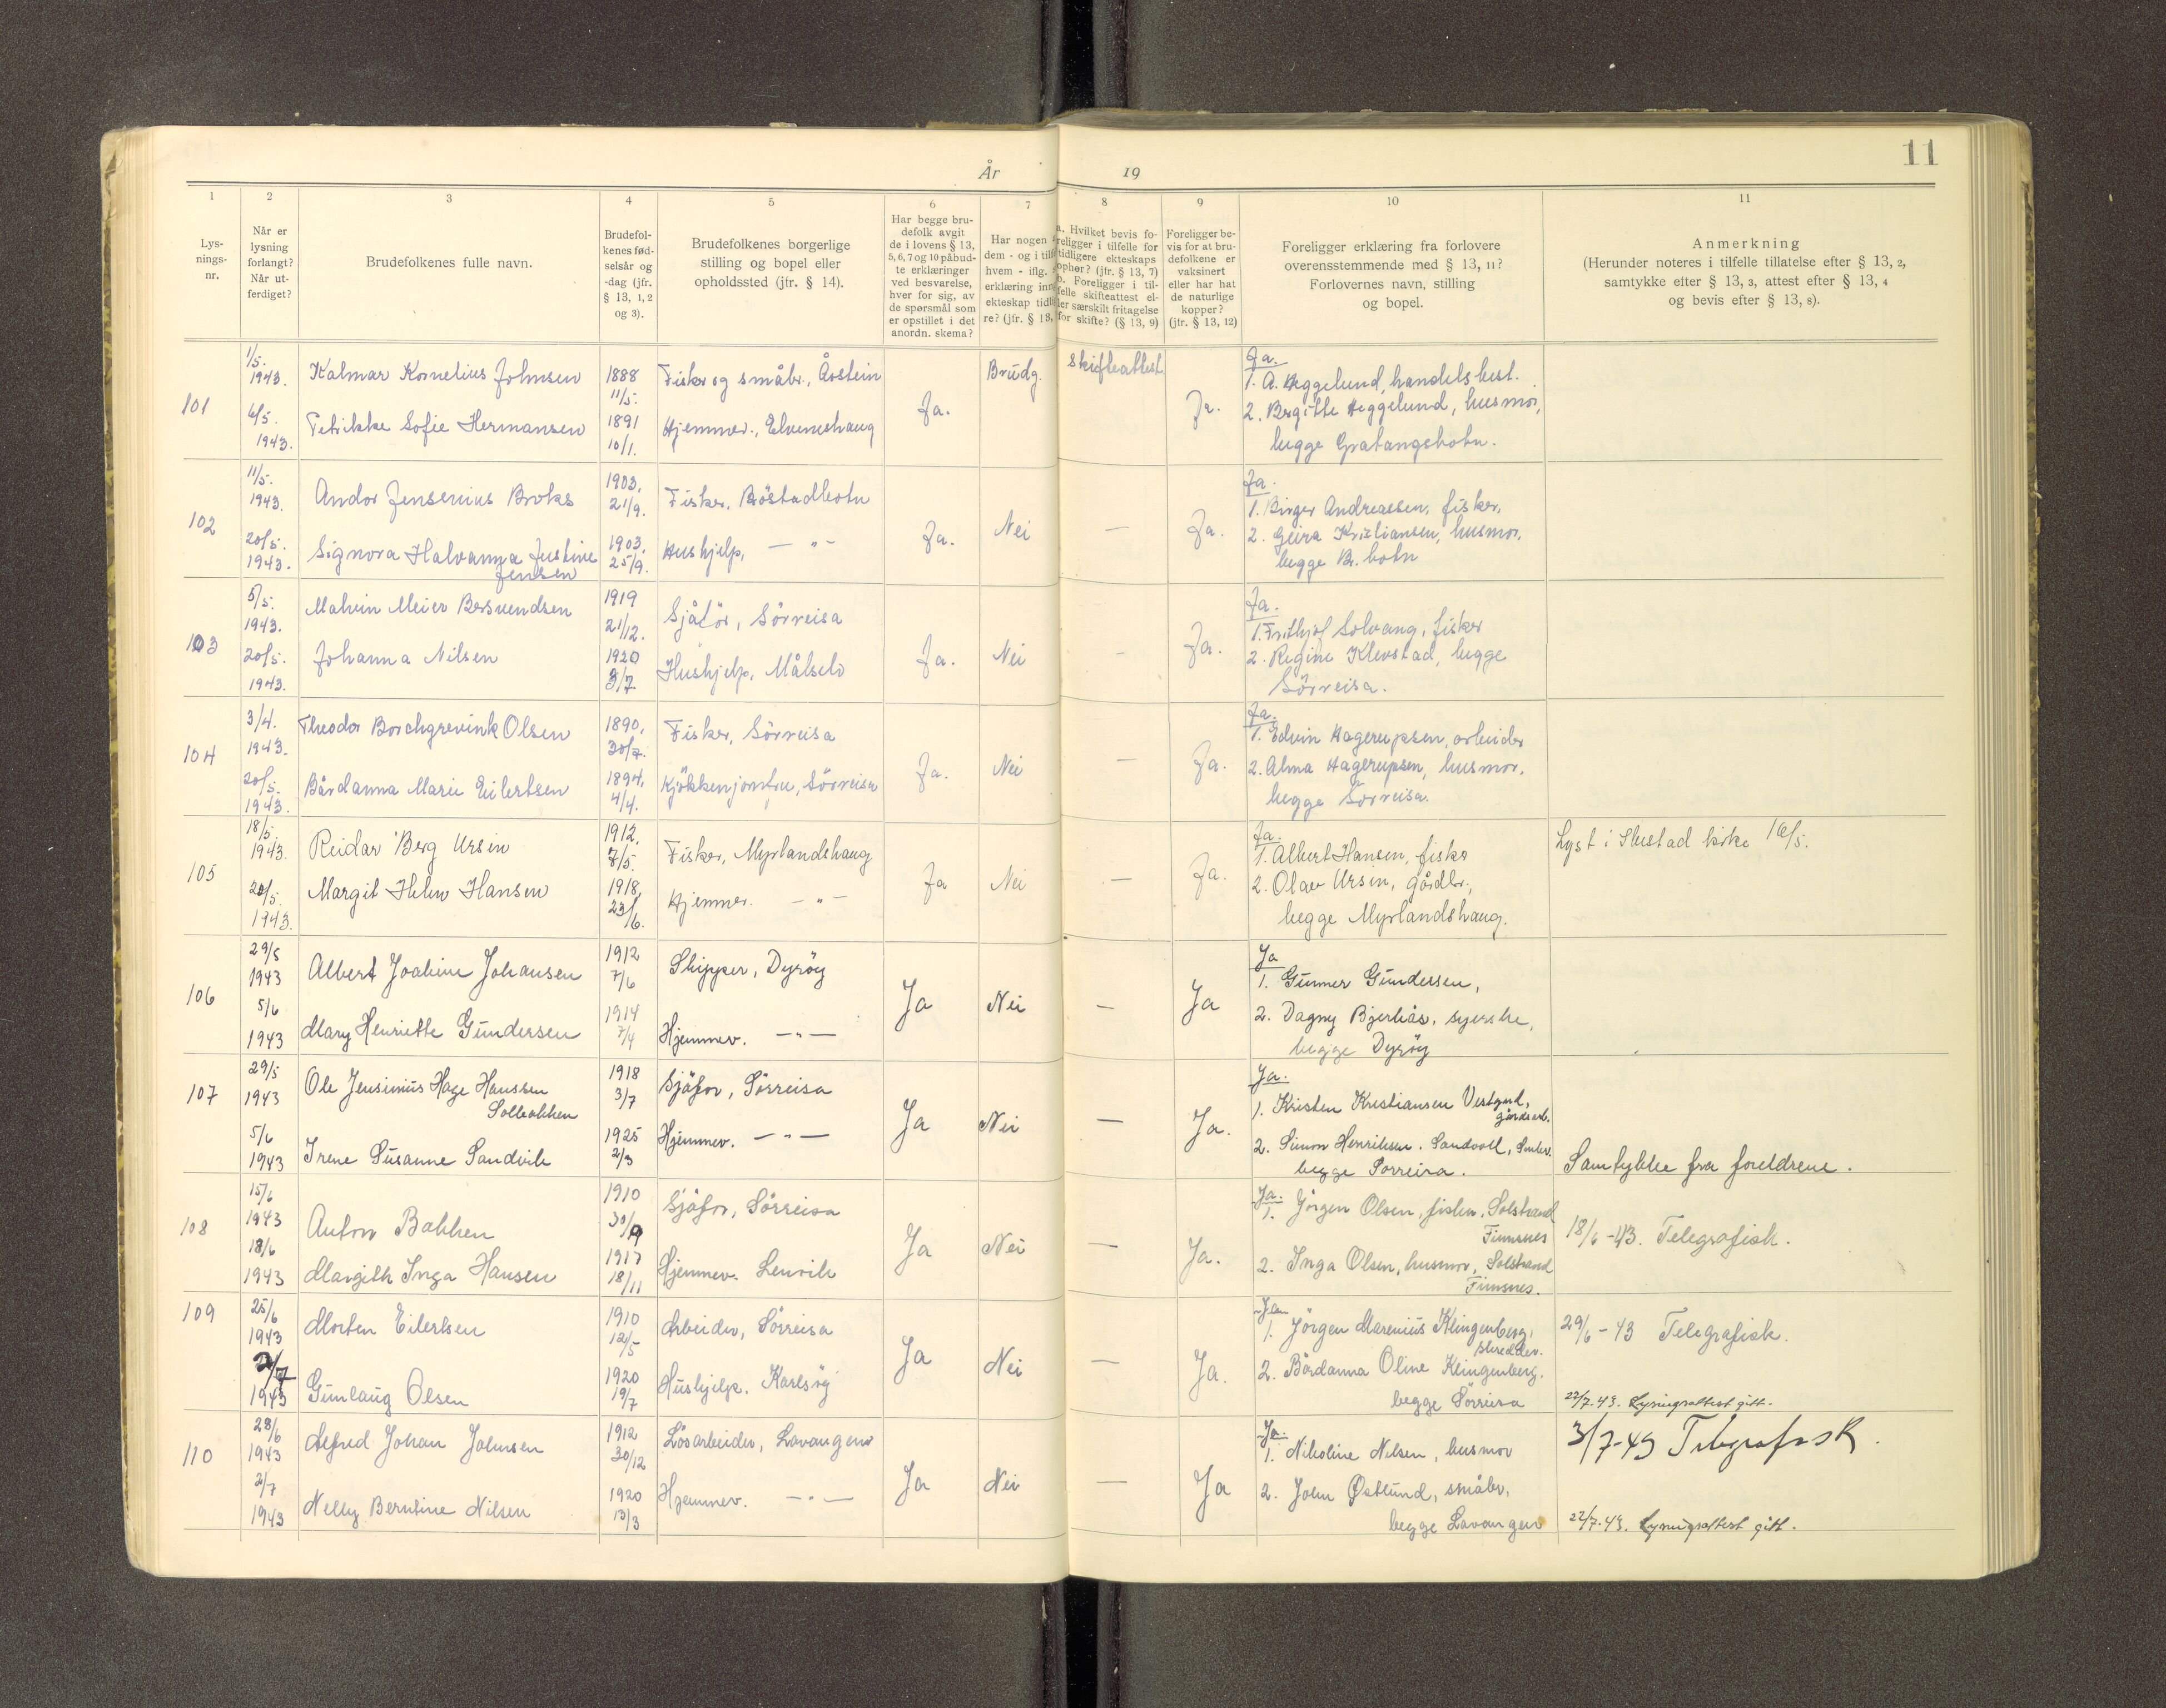 11
År 19
1 2 3 4 5 6 7 8 9 10 11
Lys-
nings-
nr.
Når er
lysning
forlangt?
Når ut-
ferdiget?
Brudefolkenes fulle navn.
Brudefol-
kenes fød-
selsår og
-dag (jfr.
§ 13, 1, 2
og 3).
Brudefolkenes borgerlige
stilling og bopel eller
opholdssted (jfr. § 14).
Har begge bru-
defolk avgit
de i lovens § 13,
5, 6, 7 og 10 påbud-
te erklæringer
ved besvarelse,
hver for sig, av
de spørsmål som
er opstillet i det
anordn. skema?
Har nogen
dem - og i tilf
hvem - iflg.
erklæring inn
ekteskap tidl
re? (jfr. § 13,
a. Hvilket bevis fo-
religger i tilfelle for
tidligere ekteskaps
ophør? (jfr. § 13, 7)
b. Foreligger i til-
felle skifteattest el-
ler særskilt fritagelse
for skifte? (§ 13, 9)
Foreligger be-
vis for at bru-
defolkene er
vaksinert
eller har hat
de naturlige
kopper?
(jfr. § 13, 12)
Foreligger erklæring fra forlovere
overensstemmende med § 13, 11?
Forlovernes navn, stilling
og bopel.
Anmerkning
(Herunder noteres i tilfelle tillatelse efter § 13, 2,
samtykke efter § 13, 3, attest efter § 13, 4
og bevis efter § 13, 8).
101
1/5.
1943.
6/5.
1943.
Kalmar Kornelius Johnsen
Petrikke Sofie Hermansen
1888
11/5.
1891
10/1.
Fisker og småbr., Årstein
Hjemmev., Elvemshaug
Ja.
Brudg.
Skifteattest
Ja.
Ja.
1. A. Heggelund, handelsbest.
2. Bergitte Heggelund, husmor,
begge Gratangsbotn.
102
11/5.
1943.
20/5.
1943.
Andor Jensenius Broks
Signora Halvanna Justine
Jensen
1903.
21/9.
1903.
25/9.
Fisker, Brøstadbotn
Hushjelp, — " —
Ja.
Nei
—
Ja.
Ja.
1. Birger Andreassen, fisker,
2. Geira Kristiansen, husmor,
begge Br. botn
103
5/5.
1943.
20/5.
1943.
Malvin Meier Bersvendsen
Johanna Nilsen
1919
21/12.
1920
3/7.
Sjåfør, Sörreisa
Hushjelp, Målselv
Ja.
Nei
—
Ja.
Ja.
1. Frithjof Solvang, fisker
2. Regine Klevstad, begge
Sörreisa.
104
3/4.
1943.
20/5.
1943.
Theodor Borchgrevink Olsen
Bårdanna Marie Eilertsen
1890.
30/7.
1894.
4/4.
Fisker, Sörreisa
Kjökkenjomfru, Sörreisa
Ja.
Nei
—
Ja.
Ja.
1. Edvin Hagerupsen, arbeider
2. Alma Hagerupsen, husmor.
begge Sörreisa.
105
18/5.
1943.
20/5.
1943.
Reidar Berg Ursin
Margit Helen Hansen
1912.
7/5.
1918.
23/6.
Fisker, Myrlandshaug
Hjemmev. — " —
Ja
Nei
—
Ja.
Ja.
1. Albert Hansen, fisker
2. Olav Ursin, gårdbr.,
begge Myrlandshaug.
Lyst i Ibestad kirke 16/5.
106
29/5
1943
5/6
1943
Albert Joakim Johansen
Mary Henriette Gundersen
1912
7/6
1914
7/4
Skipper, Dyröy
Hjemmev. — " —
Ja
Nei
—
Ja
Ja
1. Gunner Gundersen,
2. Dagny Bjerkås, syerske,
begge Dyröy
107
29/5
1943
5/6
1943
Ole Jensinius Hage Hanssen
Solbakken
Irene Susanne Sandvik
1918
3/7
1925
2/3
Sjåfor, Sörreisa
Hjemmev. — " —
Ja
Nei
—
Ja.
Ja.
1. Kristen Kristiansen Vestgård,
gårdsarb.
2. Simon Henriksen. Sandvoll, Småbr.
begge Sörreisa.
Samtykke fra foreldrene.
108
15/6
1943
18/6
1943
Anton Bakken
Margith Inga Hansen
1910
30/9
1917
18/11
Sjåfor, Sörreisa
Hjemmev. Lenvik
Ja
Nei
—
Ja.
Ja.
1. Jörgen Olsen, fisker, Solstrand
Finnsnes
2. Inga Olsen, husmor, Solstrand
Finnsnes.
18/6 -43. Telegrafisk.
109
25/6
1943
2/7
1943
Morten Eilertsen
Gunlaug Olsen
1910
12/5
1920
19/7
Arbeider, Sörreisa
Hushjelp. Karlsöy
Ja
Nei
—
Ja.
Ja
1. Jörgen Marenius Klingenberg,
skredder.
2. Bårdanna Oline Klingenberg.
begge Sörreisa
29/6 - 43 Telegrafisk.
22/7.43. Lysningsattest gitt.
110
28/6
1943
2/7
1943
Alfred Johan Johnsen
Nelly Berntine Nilsen
1912
30/12
1920
13/3
Lösarbeider, Lavangen
Hjemmev. — " —
Ja
Nei
—
Ja
Ja.
1. Nikoline Nilsen, husmor
2. John Østlund, småbr,
begge Lavangen
3/7-43 Telegrafisk.
22/7.43. Lysningsattest gitt.